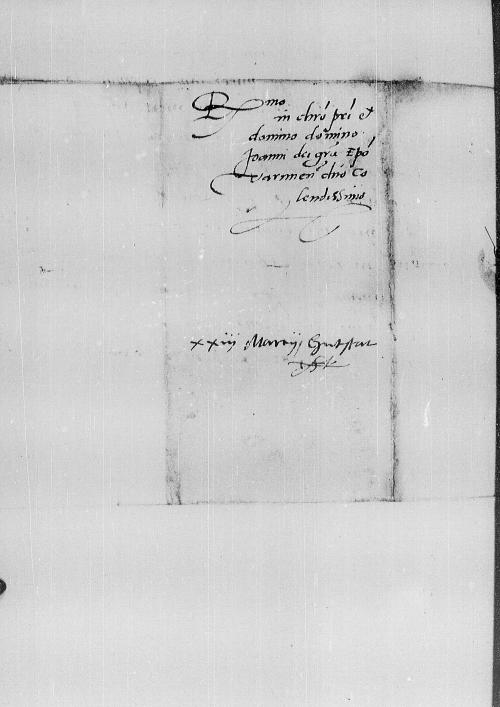 R mo
in chro pri et
domino domino
Joanni dei gra Epo
Varmien dno Co
lendissimo
xxiij Martij